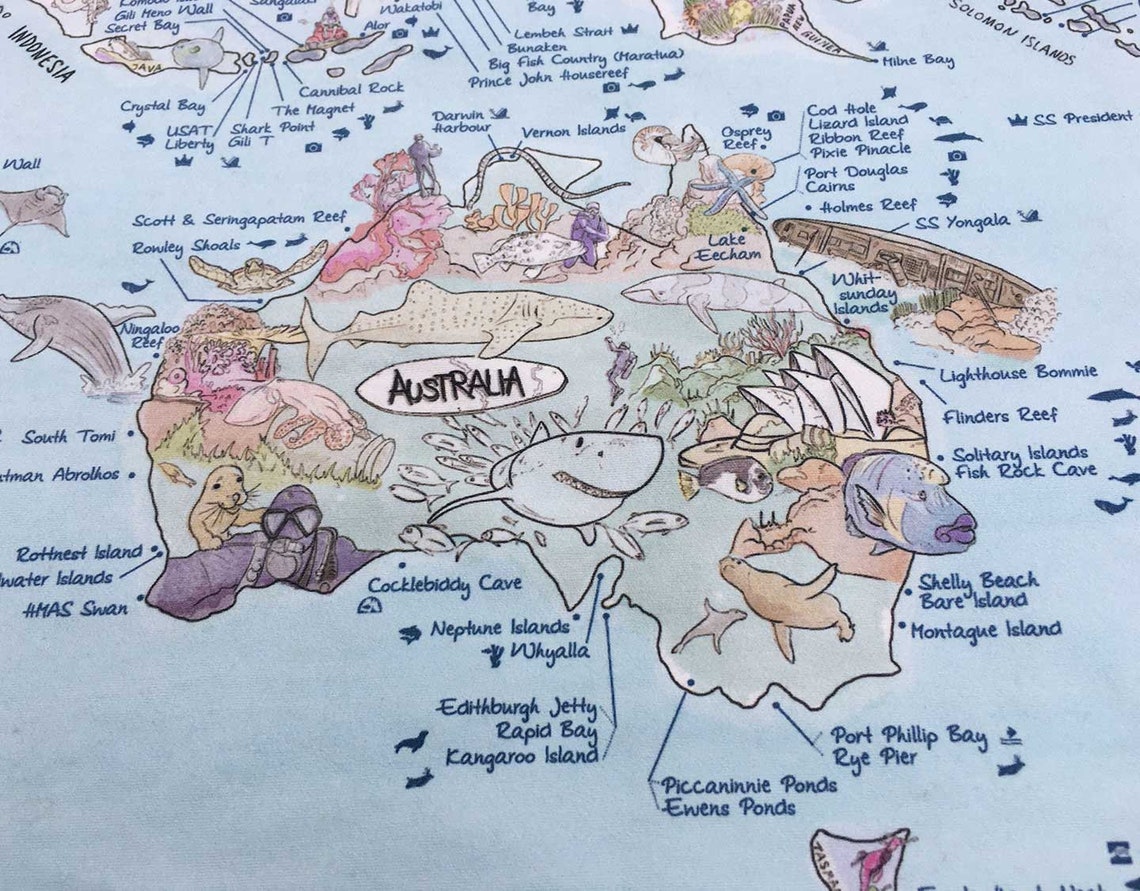 INDONESIA
Gili Meno Wall
Secret Bay
Sangalaki
Alor
Wakatobi
Bay
Lembeh Strait
Bunaken
Big Fish Country (Maratua)
Prince John Housereef
SOLOMON ISLANDS
Milne Bay
JAVA
Cannibal Rock
The Magnet
Crystal Bay
USAT
Liberty
Shark Point
Gili T
Darwin
Harbour
Vernon Islands
Osprey
Reef
Cod Hole
Lizard Island
Ribbon Reef
Pixie Pinacle
SS President
Port Douglas
Cairns
Holmes Reef
SS Yongala
Wall
Scott & Seringapatam Reef
Rowley Shoals
Lake
Eecham
Whit-
sunday
Islands
Ningaloo
Reef
AUSTRALIA
Lighthouse Bommie
Flinders Reef
Solitary Islands
Fish Rock Cave
South Tomi
Abrolhos
Rottnest Island
Islands
HMAS Swan
Cocklebiddy Cave
Neptune Islands
Whyalla
Shelly Beach
Bare Island
Montague Island
Edithburgh Jetty
Rapid Bay
Kangaroo Island
Port Phillip Bay
Rye Pier
Piccaninnie Ponds
Ewens Ponds